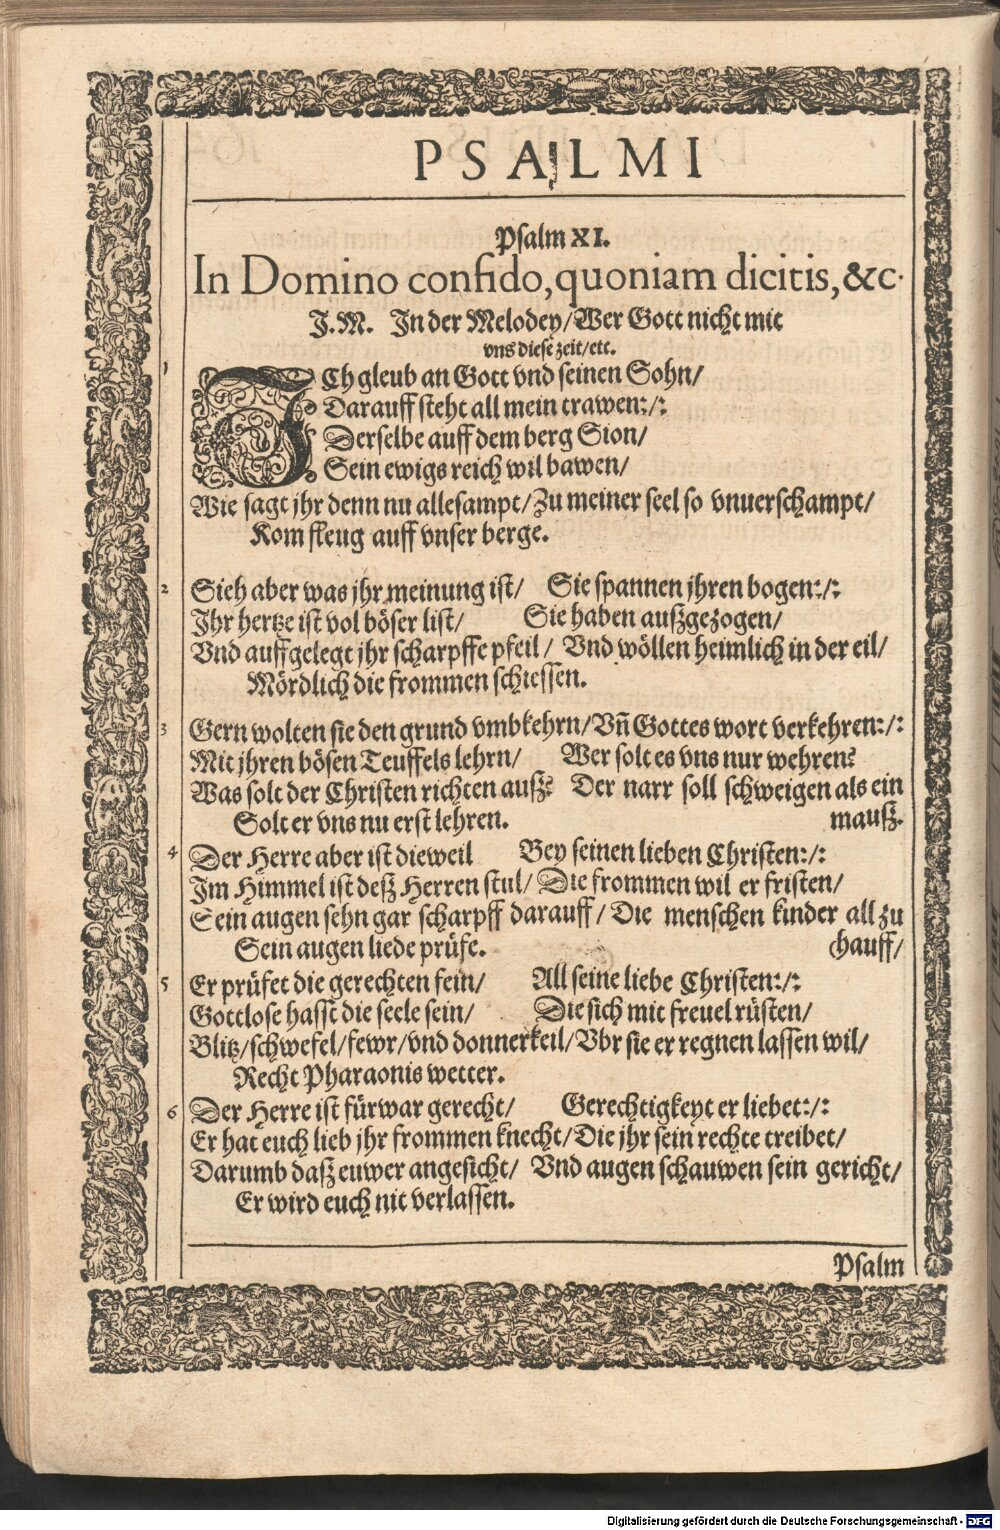 PSALMI
Psalm XI.
In Domino confido, quoniam dicitis, &c.
J. M. In der Melodey/ Wer Gott nicht mit
vns diese zeit/ etc.
1 ICh gleub an Gott vnd seinen Sohn/
Darauff steht all mein trawen:/:
Derselbe auff dem berg Sion/
Sein ewigs reich wil bawen/
Wie sagt jhr denn nu allesampt/ Zu meiner seel so vnuerschampt/
Kom fleug auff vnser berge.
2 Sieh aber was jhr meinung ist/ Sie spannen jhren bogen:/:
Ihr hertze ist vol böser list/ Sie haben außgezogen/
Vnd auffgelegt jhr scharpffe pfeil/ Vnd wöllen heimlich in der eil/
Mördlich die frommen schiessen.
3 Gern wolten sie den grund vmbkehrn/ Vñ Gottes wort verkehren:/:
Mit jhren bösen Teuffels lehrn/ Wer solt es vns nur wehren?
Was solt der Christen richten auß? Der narr soll schweigen als ein
Solt er vns nu erst lehren. mauß.
4 Der Herre aber ist dieweil Bey seinen lieben Christen:/:
Im Himmel ist deß Herren stul/ Die frommen wil er fristen/
Sein augen sehn gar scharpff darauff/ Die menschen kinder all zu
Sein augen liede prüfe. hauff/
5 Er prüfet die gerechten fein/ All seine liebe Christen:/:
Gottlose hasst die seele sein/ Die sich mit freuel rüsten/
Blitz/ schwefel/ fewr/ vnd donnerkeil/ Vbr sie er regnen lassen wil/
Recht Pharaonis wetter.
6 Der Herre ist fürwar gerecht/ Gerechtigkeyt er liebet:/:
Er hat euch lieb jhr frommen knecht/ Die jhr sein rechte treibet/
Darumb daß euwer angesicht/ Vnd augen schauwen sein gericht/
Er wird euch nit verlassen.
Psalm
Digitalisierung gefördert durch die Deutsche Forschungsgemeinschaft - DFG